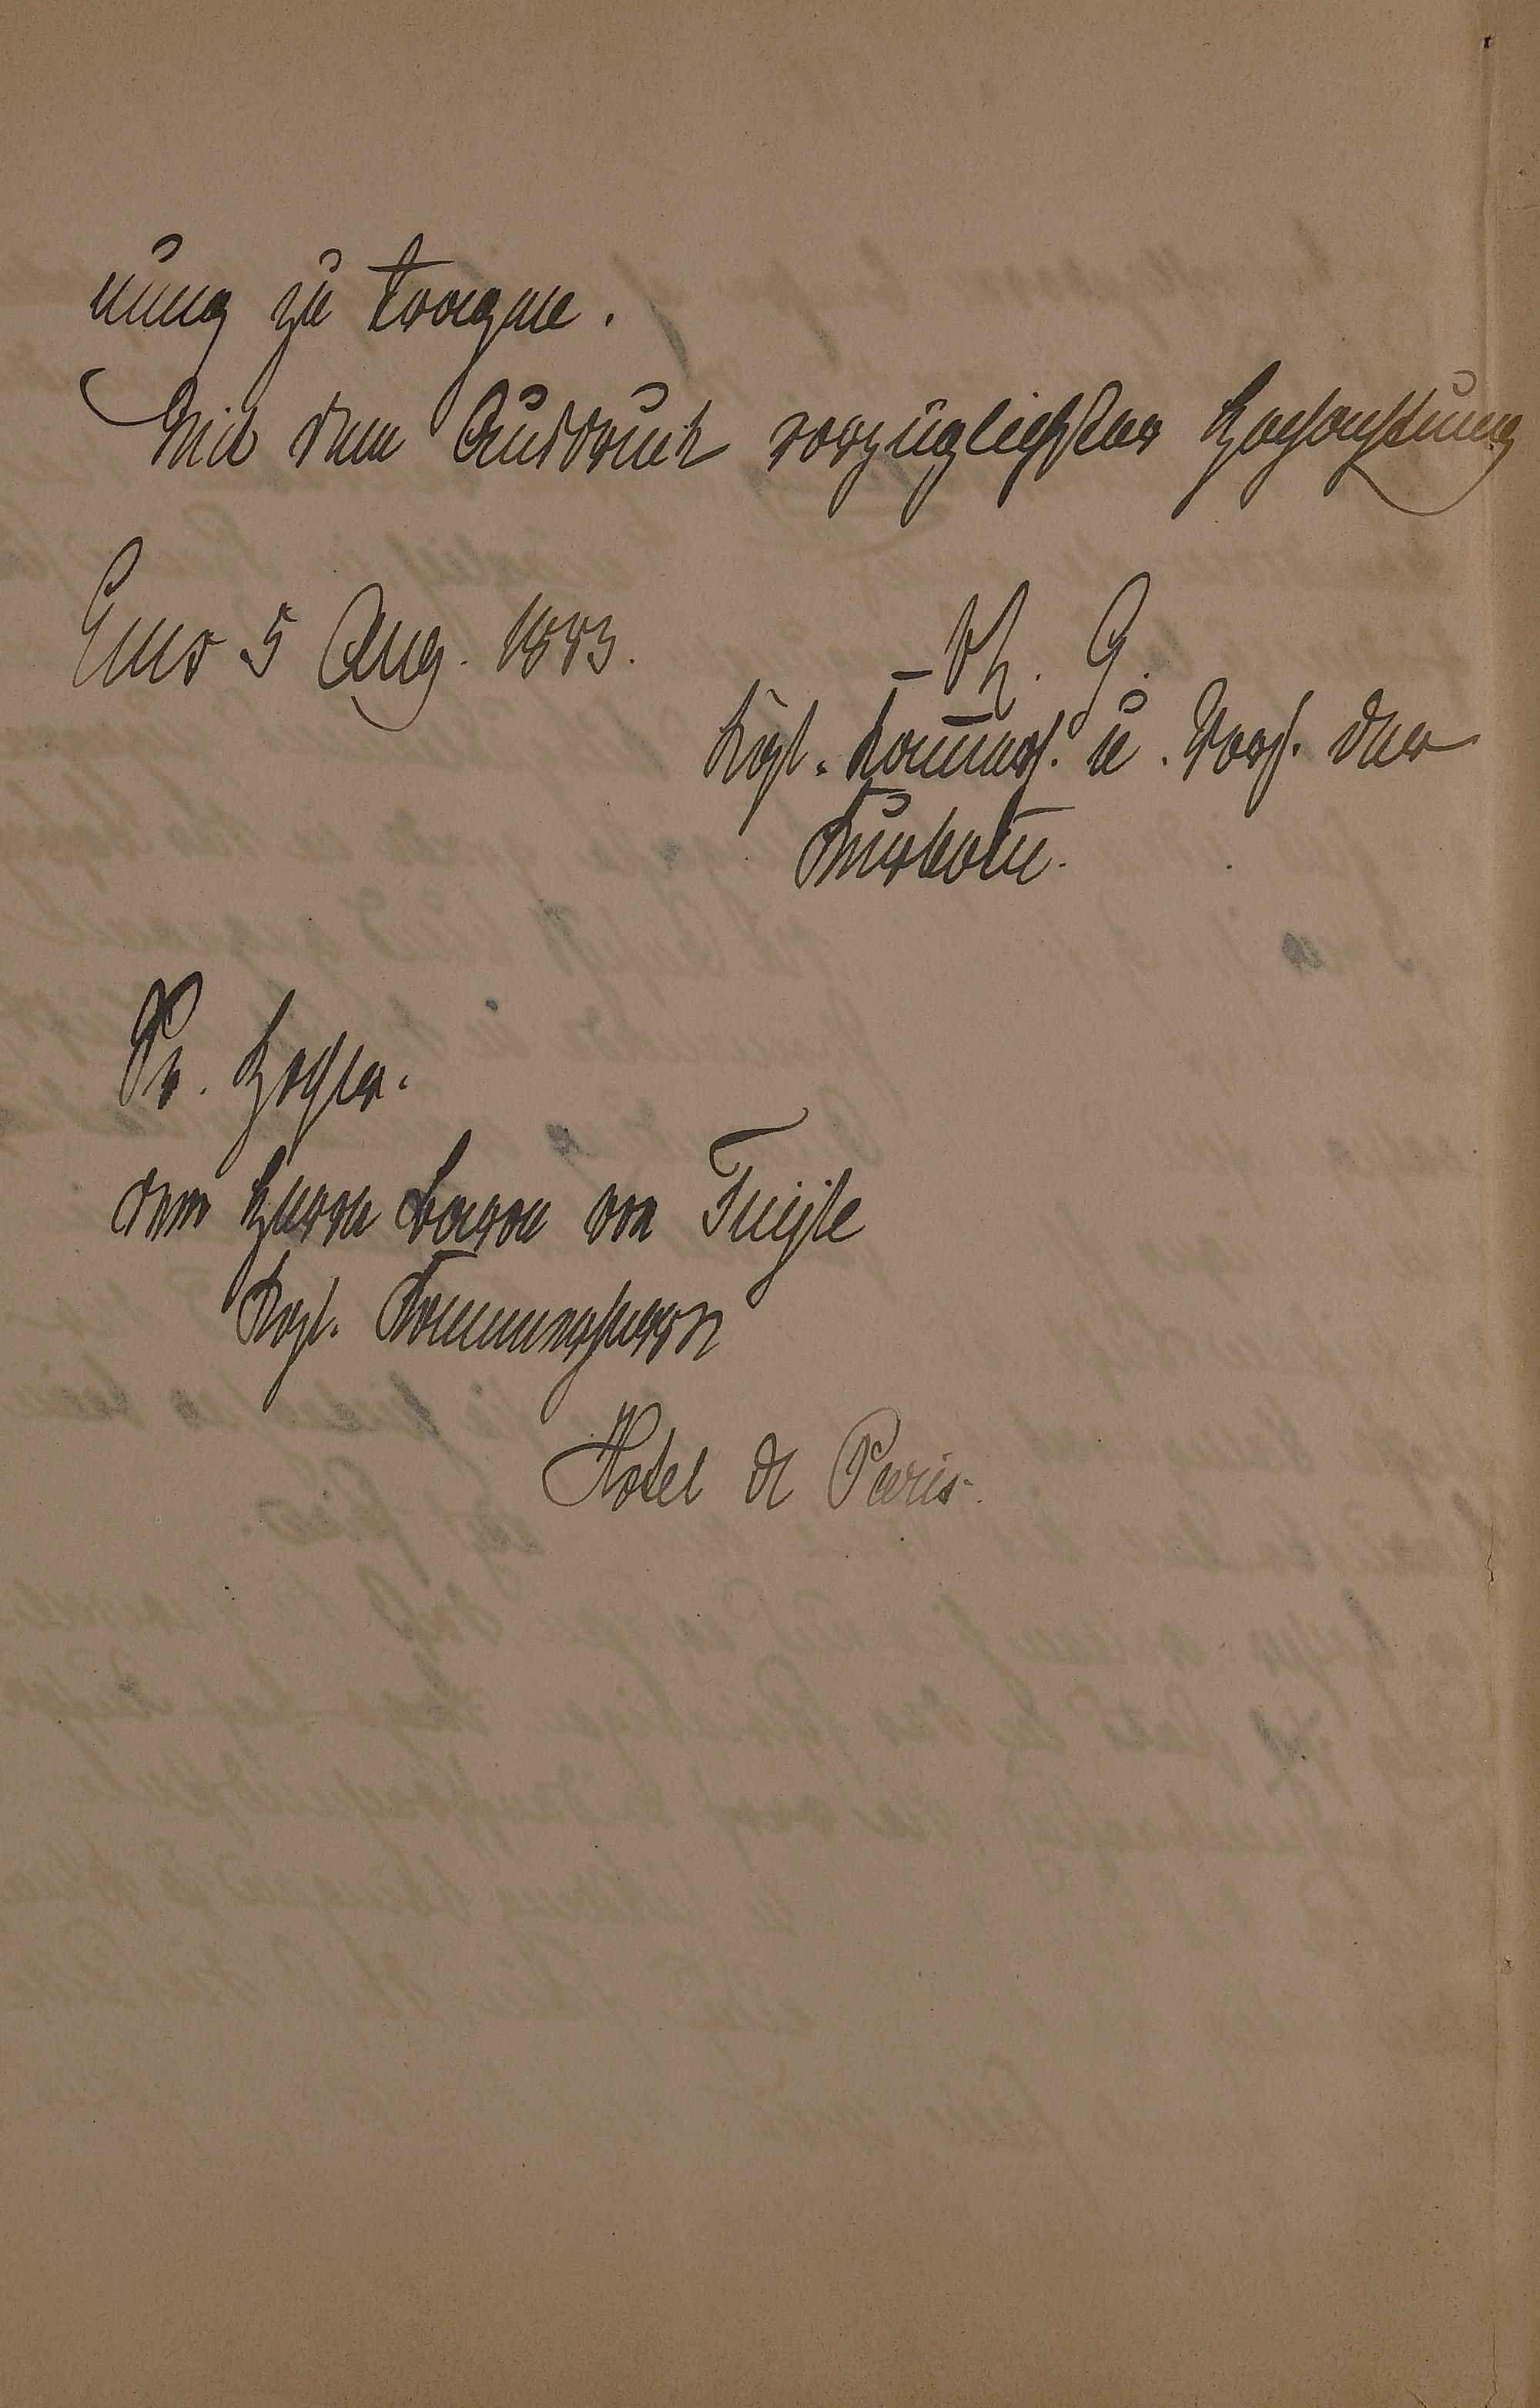 nung zu tragen.
Mit dem Ausdruck vorzüglichster Hochachtung
Ems 5 Aug. 1893.
Kgl. Kammerh. u. Vors. der
Kurkom.
Sr. Hochw.
dem Herrn Baron von Tuijle
Kgl. Kammerherrn
Hotel de Paris.